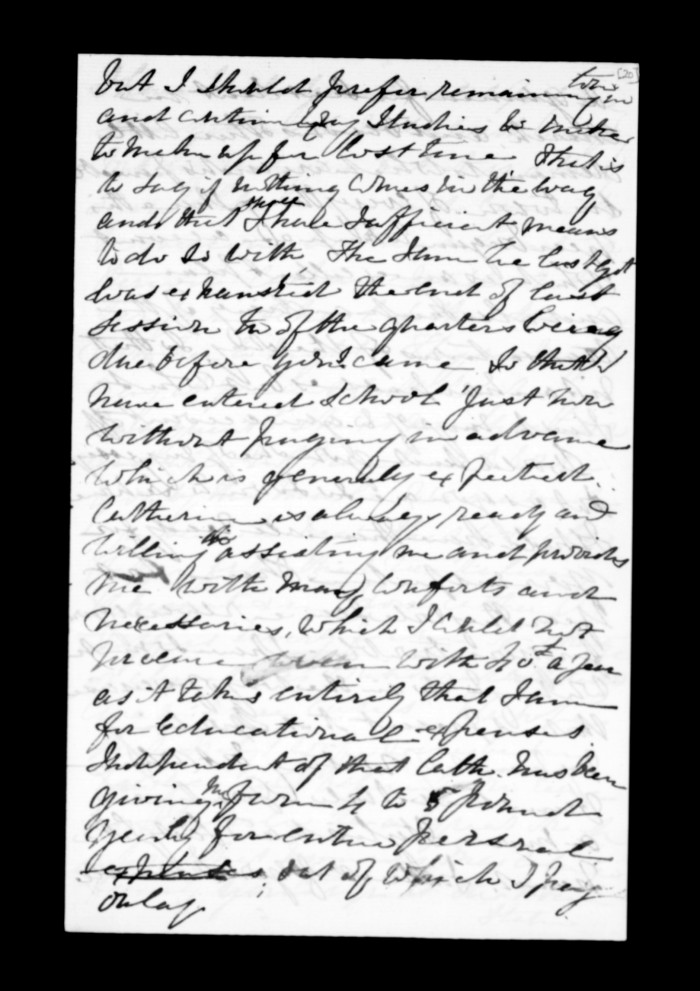 [20]
but I should prefer remaining in town
and continue my Studies & in order
to make up for lost time that is
to say if nothing comes in the way
and that I have sufficient means
to do so with The Sum he last got
was exhausted the end of last
session two of the quarters being
due before you came So that I
have entered School just now
without paying in advance
which is generally expected.
Catherine is always ready and
willing assisting me and provides
me with many comforts and
necessaries, which I could not
with 40£ a year
as it takes entirely that Sum
for educational expenses
Independent of that Cath. has been
giving me from 4 to 5 Pound
yearly for entire personal
expenses, out of which I pay
only